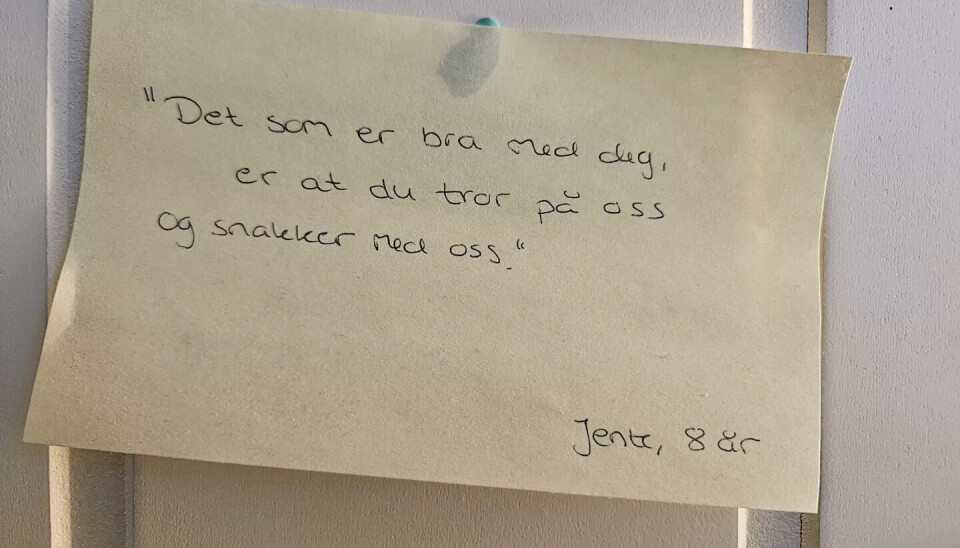 "Det som er bra med deg,
er at du tror på oss
og snakker med oss."
Jente, 8 år